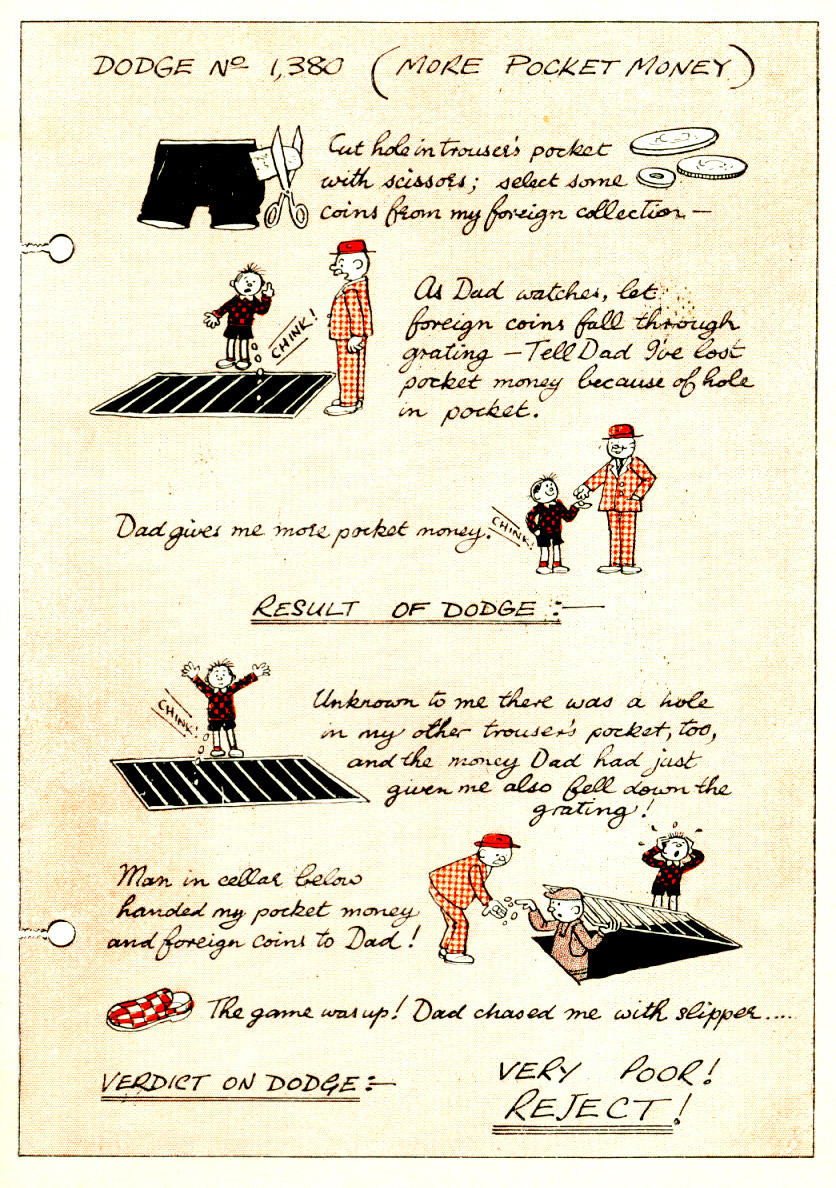 DODGE Nº 1,380 (MORE POCKET MONEY)
Cut hole in trouser's pocket
with scissors; select some
coins from my foreign collection —
CHINK!
As Dad watches, let
foreign coins fall through
grating — Tell Dad I've lost
pocket money because of hole
in pocket.
Dad gives me more pocket money.
CHINK!
RESULT OF DODGE :—
CHINK!
Unknown to me there was a hole
in my other trouser's pocket, too,
and the money Dad had just
given me also fell down the
grating!
Man in cellar below
handed my pocket money
and foreign coins to Dad!
The game was up! Dad chased me with slipper.....
VERDICT ON DODGE :—
VERY POOR!
REJECT!